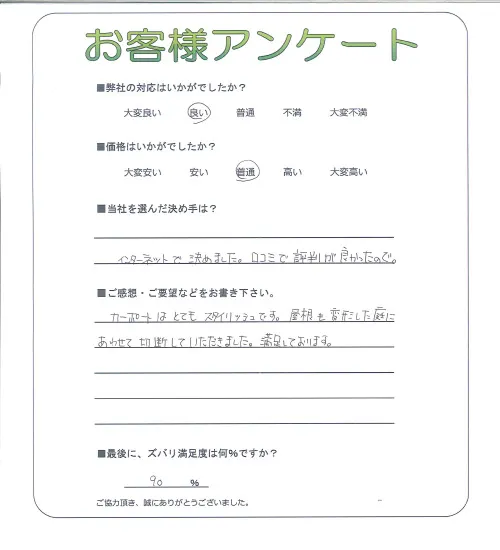 お客様アンケート
■弊社の対応はいかがでしたか？
大変良い 良い 普通 不満 大変不満
■価格はいかがでしたか？
大変安い 安い 普通 高い 大変高い
■当社を選んだ決め手は？
インターネットで決めました。口コミで評判が良かったので。
■ご感想・ご要望などをお書き下さい。
カーポートはとてもスタイリッシュです。屋根も変形した庭に
あわせて切断していただきました。満足しております。
■最後に、ズバリ満足度は何%ですか？
90 %
ご協力頂き、誠にありがとうございました。